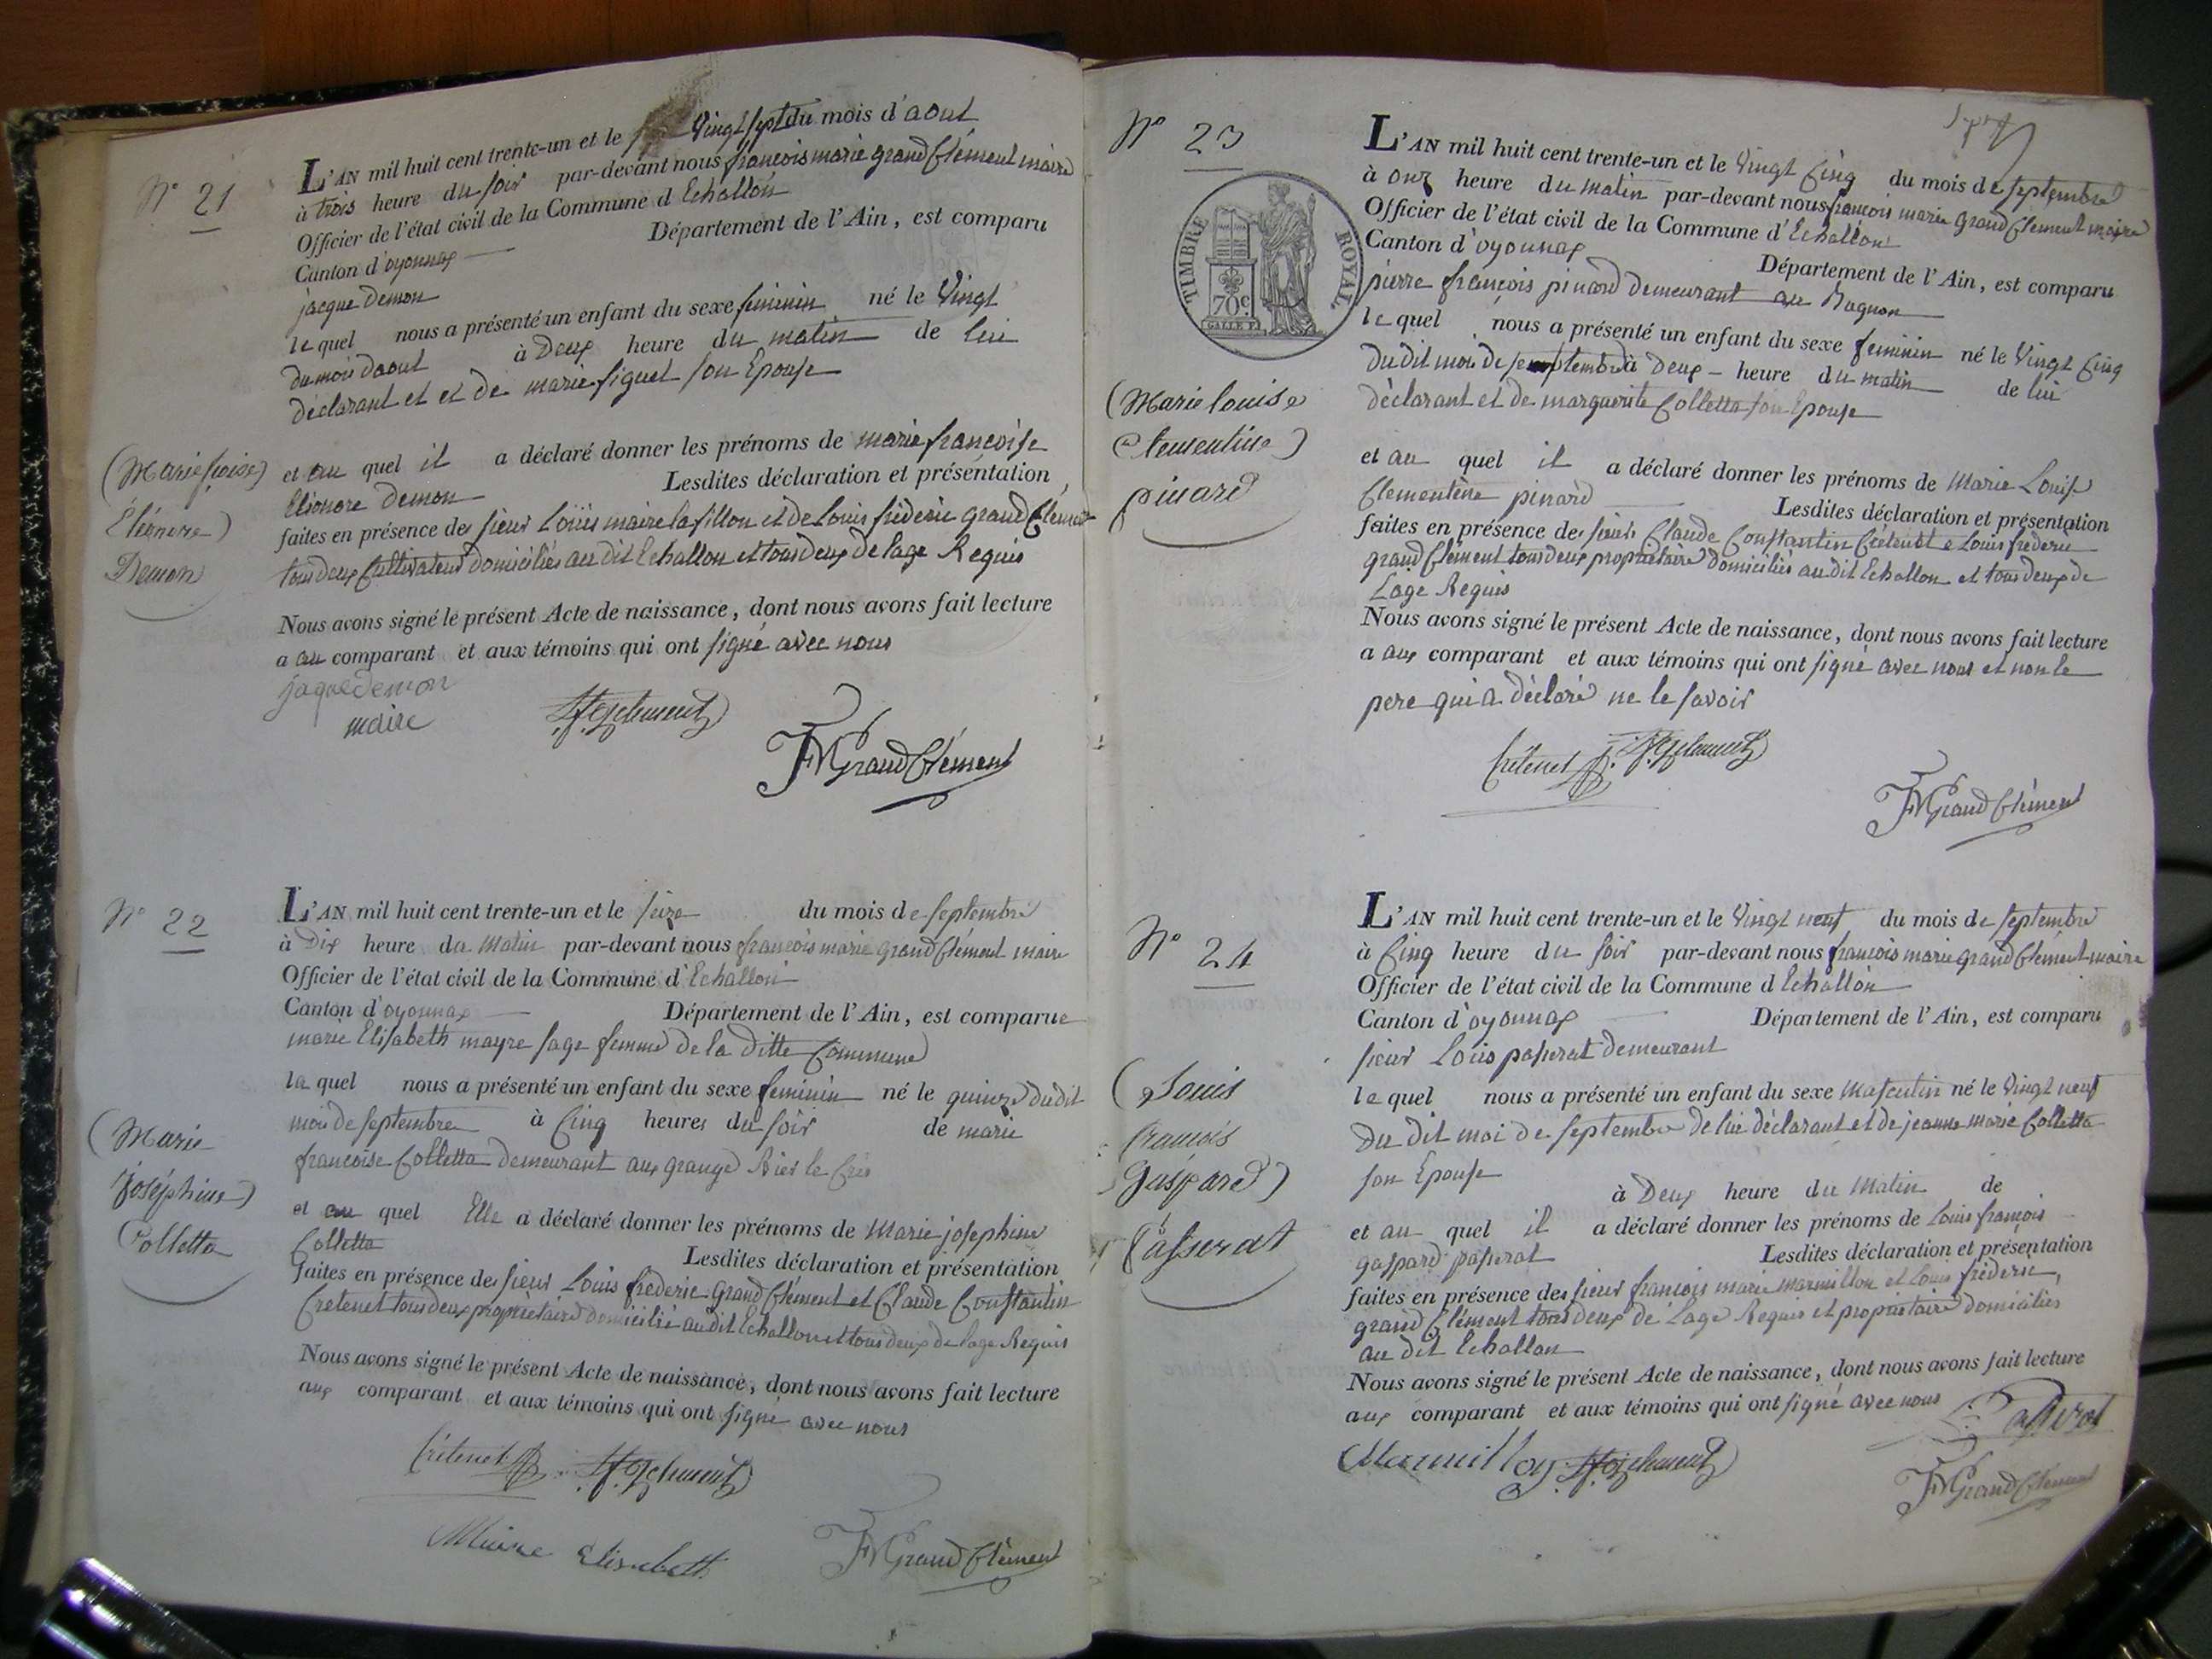 N° 21
L'AN mil huit cent trente-un et le vingt sept du mois d'aout
à trois heure du soir par-devant nous francois marie grand Clément maire
Officier de l'état civil de la Commune d Echallon
Canton d'oyonnax Département de l'Ain, est comparu
jacque Demon
le quel nous a présenté un enfant du sexe feminin né le Vingt
du mois daout à Deux heure du matin de lui
déclarant et et de marie figuet son Epouse
et au quel il a déclaré donner les prénoms de marie francoise
Elionore Demon Lesdites déclaration et présentation
faites en présence des sieur Louis maire lafillon et de Louis frédéric grand Clément
tous deux Cultivateur domiciliés au dit Echallon et tous deux de lage Requis
Nous avons signé le présent Acte de naissance, dont nous avons fait lecture
a au comparant et aux témoins qui ont signé avec nous
(Marie fcoise)
Eléonore)
Demon
jaque demon
maire
FMGrandClément
N° 22
L'AN mil huit cent trente-un et le seize du mois de septembre
à Dix heure du Matin par-devant nous francois marie grand Clément maire
Officier de l'état civil de la Commune d'Echallon
Canton d'oyonnax Département de l'Ain, est comparue
marie Elisabeth mayre sage femme de la ditte Commune
la quel nous a présenté un enfant du sexe feminin né le quinze dudit
mois de septembre à Cinq heures du soir de marie
francoise Colletta demeurant aux grange
et au quel Elle a déclaré donner les prénoms de Marie josephine
Colletta Lesdites déclaration et présentation
faites en présence des sieur Louis frederic grand Clément et Claude Constantin
Cretenet tous deux propriétaire domicilié au dit Echallon et tous deux de lage Requis
Nous avons signé le présent Acte de naissance, dont nous avons fait lecture
aux comparant et aux témoins qui ont signé avec nous
(Marie
joséphine)
Colletta
Crétenet
Maire Elisabeth
FMGrandClément
N° 23
TIMBRE ROYAL
70c
L'AN mil huit cent trente-un et le Vingt Cinq du mois de septembre
à onz heure du matin par-devant nous francois marie grand Clement maire
Officier de l'état civil de la Commune d'Echallon
Canton d'oyonnax Département de l'Ain, est comparu
pierre françois pinard demeurant au
le quel nous a présenté un enfant du sexe feminin né le Vingt Cinq
du dit mois de septembre à Deux heure du matin de lui
déclarant et de marguerite Colletta son Epouse
et au quel il a déclaré donner les prénoms de Marie Louise
Clementine pinard Lesdites déclaration et présentation
faites en présence des sieurs Claude Constantin Crétenet e Louis frederic
grand Clément tous deux propriétaire domiciliés au dit Echallon et tous deux de
Lage Requis
Nous avons signé le présent Acte de naissance, dont nous avons fait lecture
a aux comparant et aux témoins qui ont signé avec nous et non le
pere qui a déclaré ne le savoir
(Marie louise
Clementine)
pinard
Crétenet
FMGrandClément
N° 24
L'AN mil huit cent trente-un et le Vingt neuf du mois de septembre
à Cinq heure du soir par-devant nous francois marie grand Clément maire
Officier de l'état civil de la Commune d Echallon
Canton d'oyonnax Département de l'Ain, est comparu
sieur Louis passerat demeurant
le quel nous a présenté un enfant du sexe Masculin né le Vingt neuf
du dit moi de septembre de lui déclarant et de jeanne marie Colletta
son Epouse à Deux heure du Matin de
et au quel il a déclaré donner les prénoms de Louis françois
gaspard passerat Lesdites déclaration et présentation
faites en présence des sieur francois marie marmillon et Louis fréderic
grand Clément tous deux de Lage Requis et propriétaire domicilies
au dit Echallon
Nous avons signé le présent Acte de naissance, dont nous avons fait lecture
aux comparant et aux témoins qui ont signé avec nous
(Louis
francois
Gaspard)
Passerat
Passerat
Marmillon
FMGrandClément